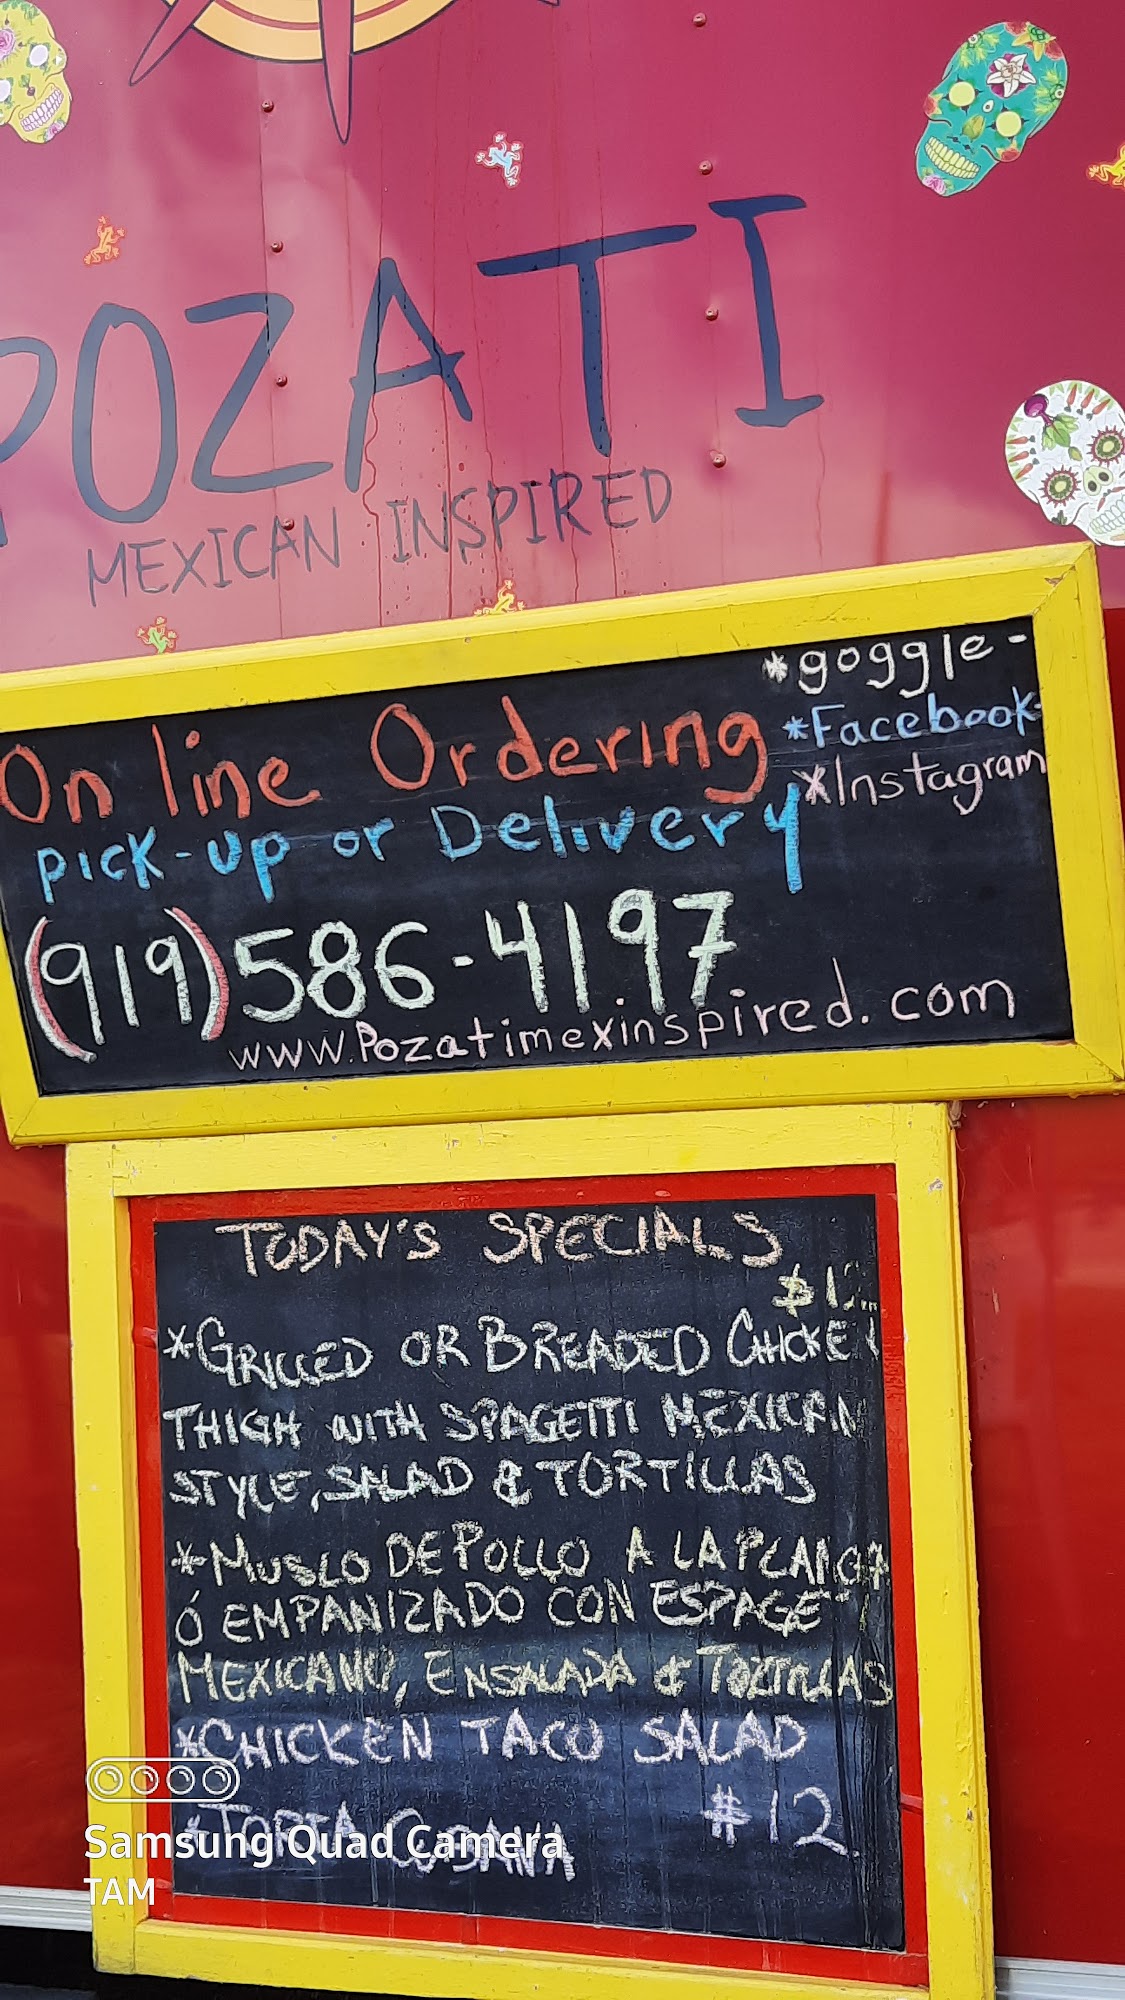 POZATI
MEXICAN INSPIRED
*goggle-
*Facebook
*Instagram
On line Ordering
pick-up or Delivery
(919)586-4197
www.Pozatimexinspired.com
TODAY'S SPECIALS
$12
*GRILLED OR BREADED CHICKEN
THIGH WITH SPAGETTI MEXICAN
STYLE, SALAD & TORTILLAS
*MUSLO DE POLLO A LA PLANCHA
Ó EMPANIZADO CON ESPAGETI
MEXICANO, ENSALADA & TORTILLAS
*CHICKEN TACO SALAD
*TORTA CUBANA $12
Samsung Quad Camera
TAM